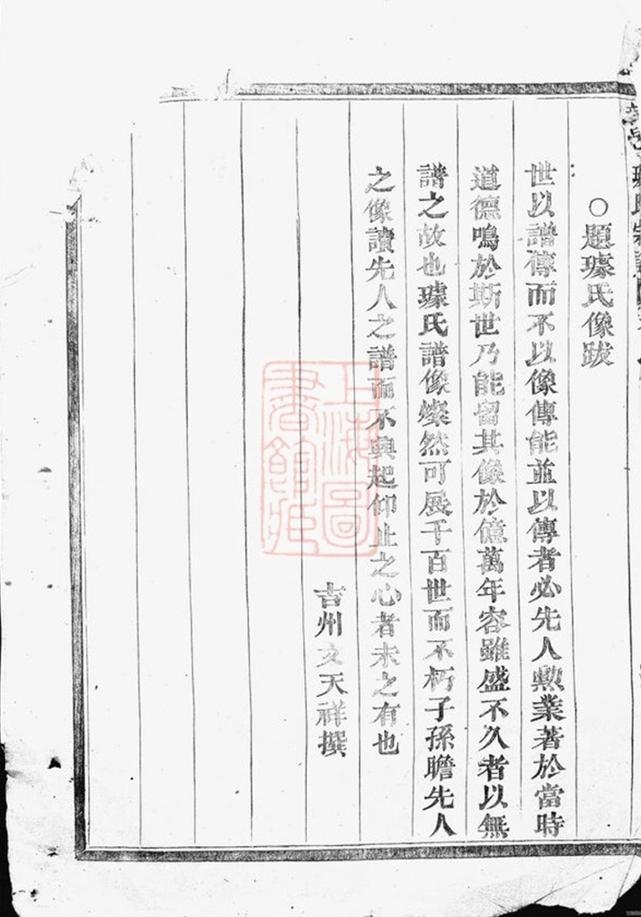 ○題璩氏像跋
世以譜傳而不以像傳能並以傳者必先人勲業著於當時
道德鳴於斯世乃能留其像於億萬年容雖盛不久者以無
譜之故也璩氏譜像燦然可展千百世而不朽子孫瞻先人
之像讀先人之譜而不興起仰止之心者未之有也
吉州文天祥撰
上海圖
書館藏